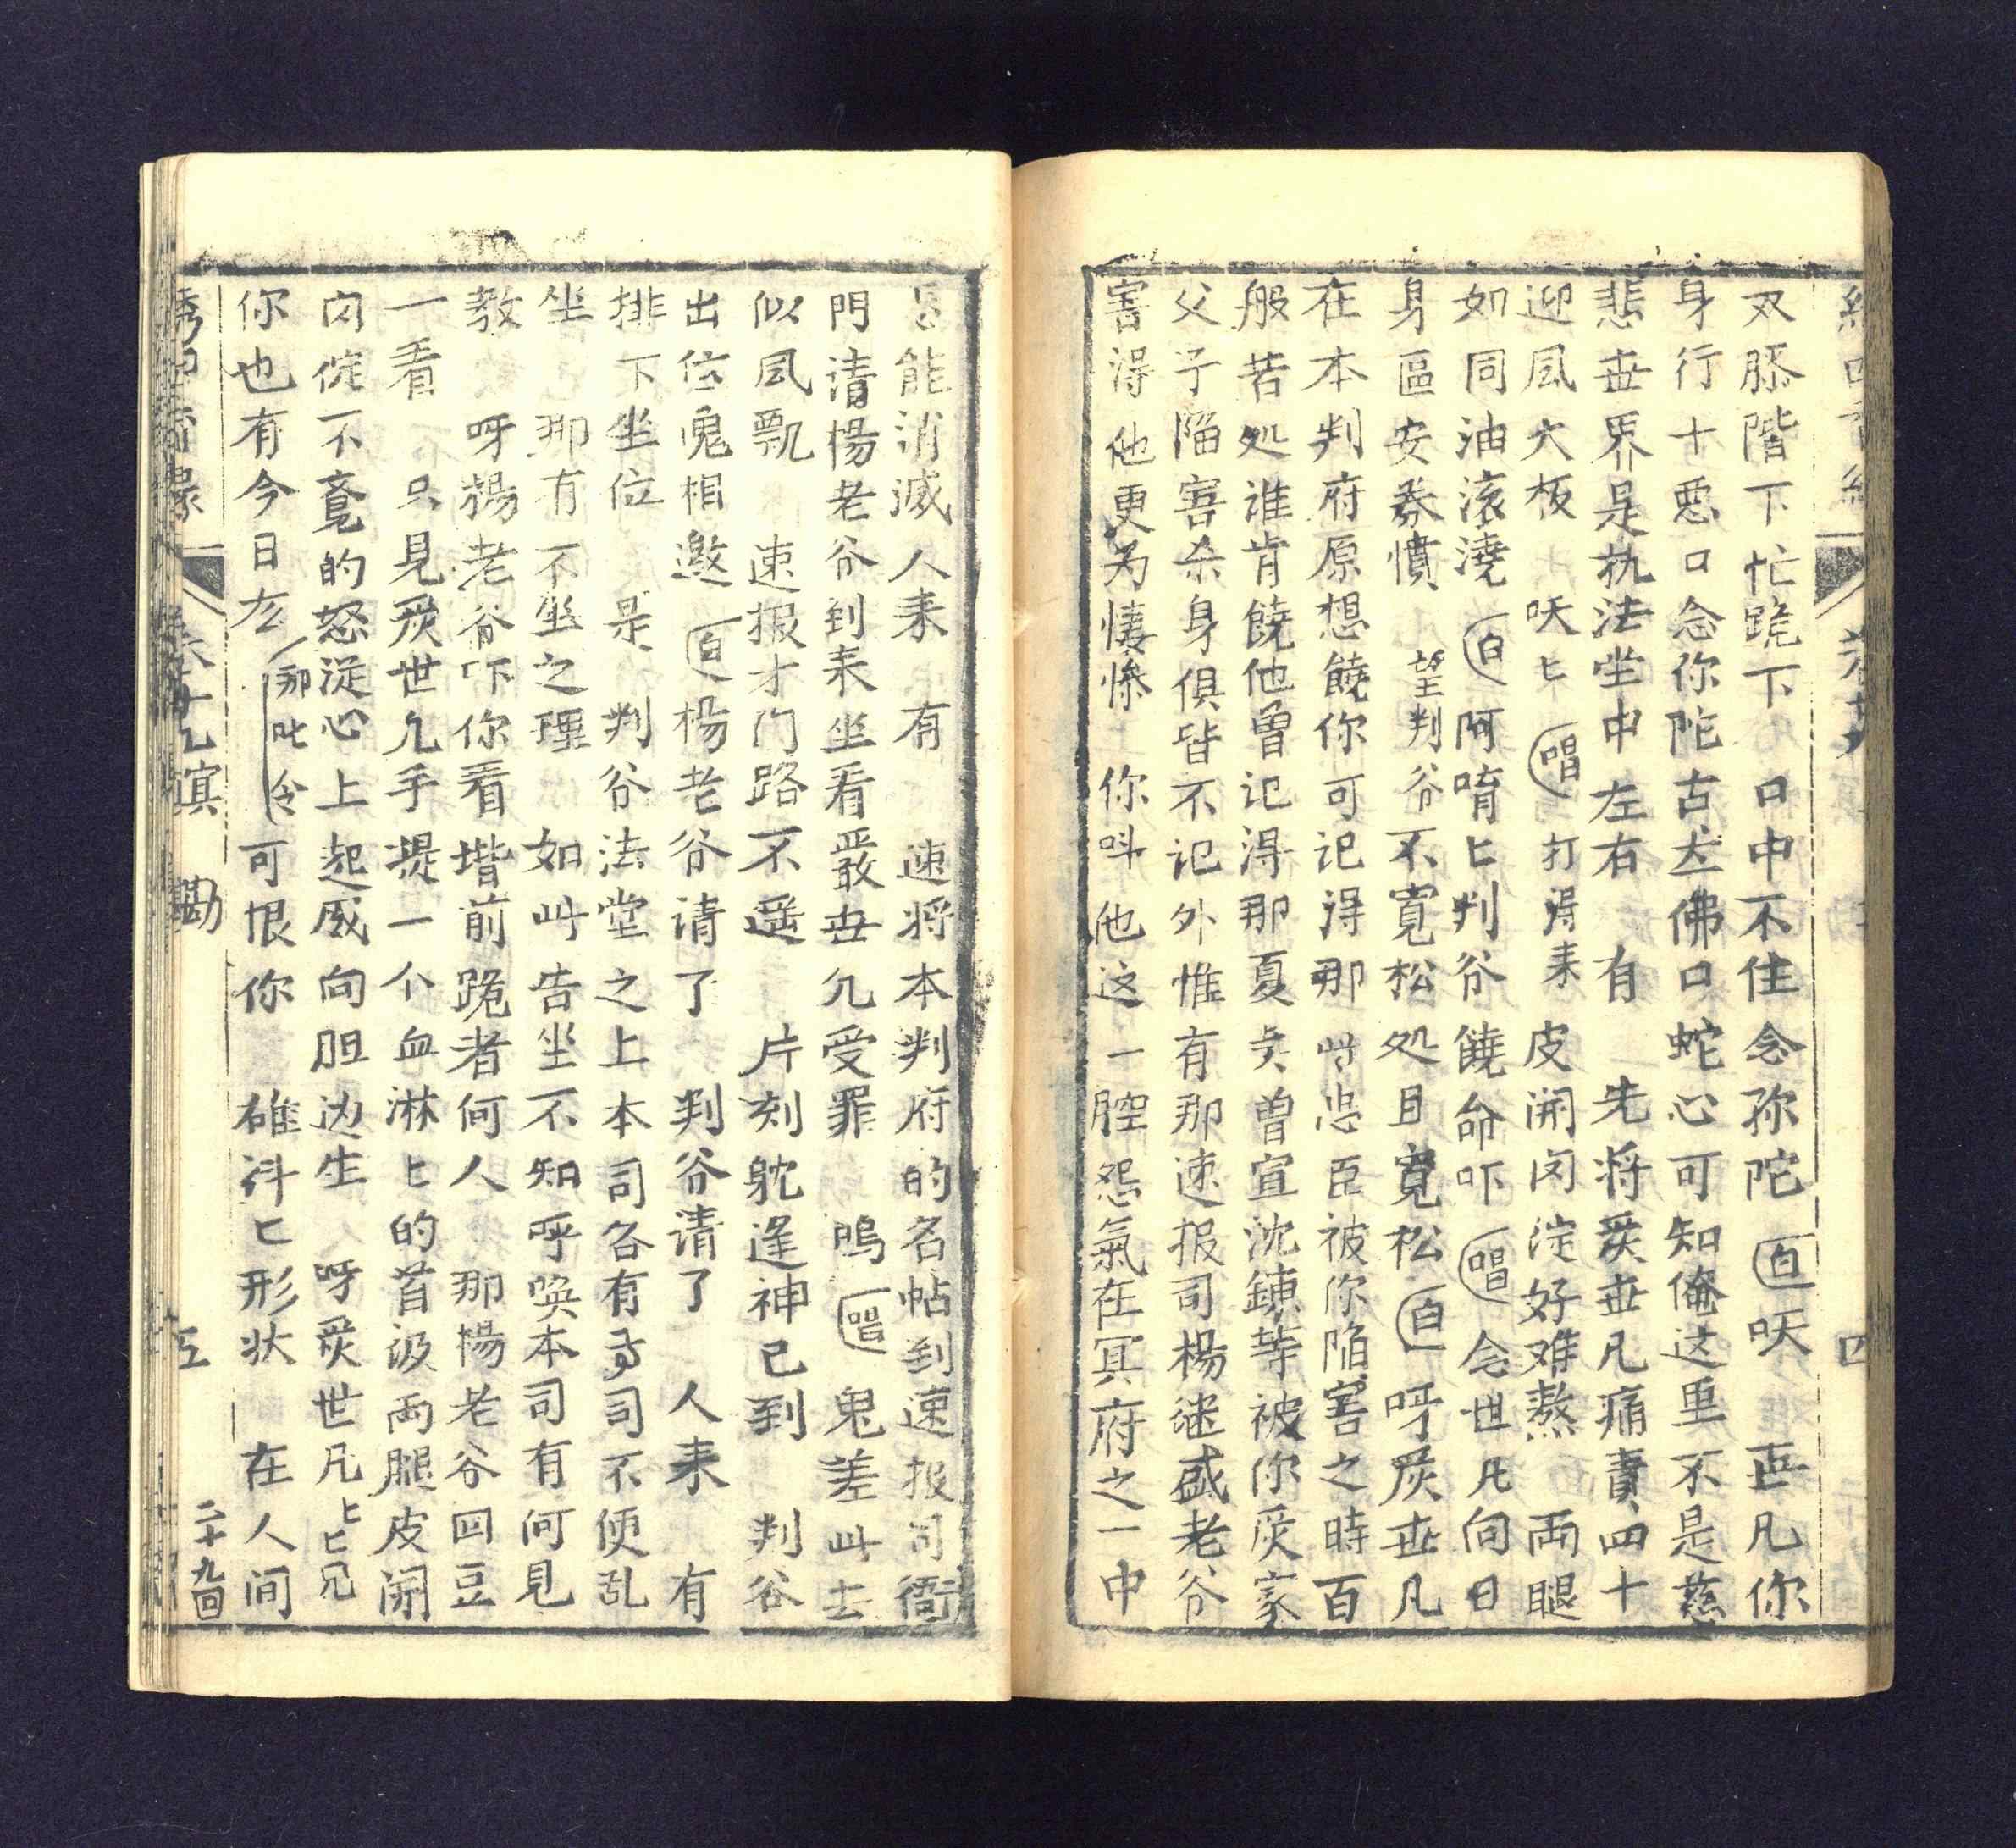 双膝階下忙跪下 口中不住念弥陀 白 呔 世凡你
身行十惡口念你陀古云佛口蛇心可知俺这重不是慈
悲世界是执法坐中左右 有 先将嚴世凡痛責四十
迎風大板 呔匕 唱 打得来 皮開肉淀好难熬 両腿
如同油滚澆 白 阿唷匕判谷饒命吓 唱 念世凡向日
身區安券慣 望判谷不寬松処且寬松 白 呀嚴世凡
在本判府原想饒你可记得那些忠臣被你陥害之時百
般苦処谁肯饒他曾记得那夏夫曾宣沈鍊等被你嚴家
父子陥害杀身俱皆不记外惟有那速报司楊継盛老谷
害得他更为悽慘 你呌他这一腔怨氣在冥府之一中
能消滅 人来 有 速将本判府的名帖到速报司衙
門清楊老谷到来坐看嚴世凡受罪 鳴 唱 鬼差此去
似風飄 速报才门路不遥 片刻躭逢神已到 判谷
出位鬼相邀 白 楊老谷请了 判谷请了 人来 有
排下坐位 是 判谷法堂之上本司各有司不便乱
坐 那有不坐之理 如此告坐不知呼喚本司有何見
教 呀楊老谷吓你看堦前跪者何人 那楊老谷四豆
一看 只見嚴世凡手提一个血淋匕的首汲両腿皮開
肉淀不覔的怒從心上起威向胆边生 呀嚴世凡匕匕兄
你也有今日厷 那叱令 可恨你 碓汼匕形状 在人间
二十九回